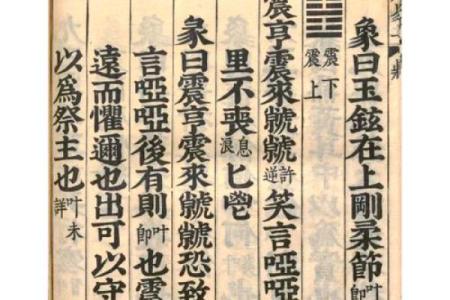 象曰玉鉉在上剛柔節叶即
䷲震下震上
震亨震來虩虩許逆笑言啞啞
里不喪息浪匕鬯
彖曰震亨震來虩虩恐致
言啞啞後有則叶即也震
遠而懼邇也出可以守
以爲祭主也叶未詳